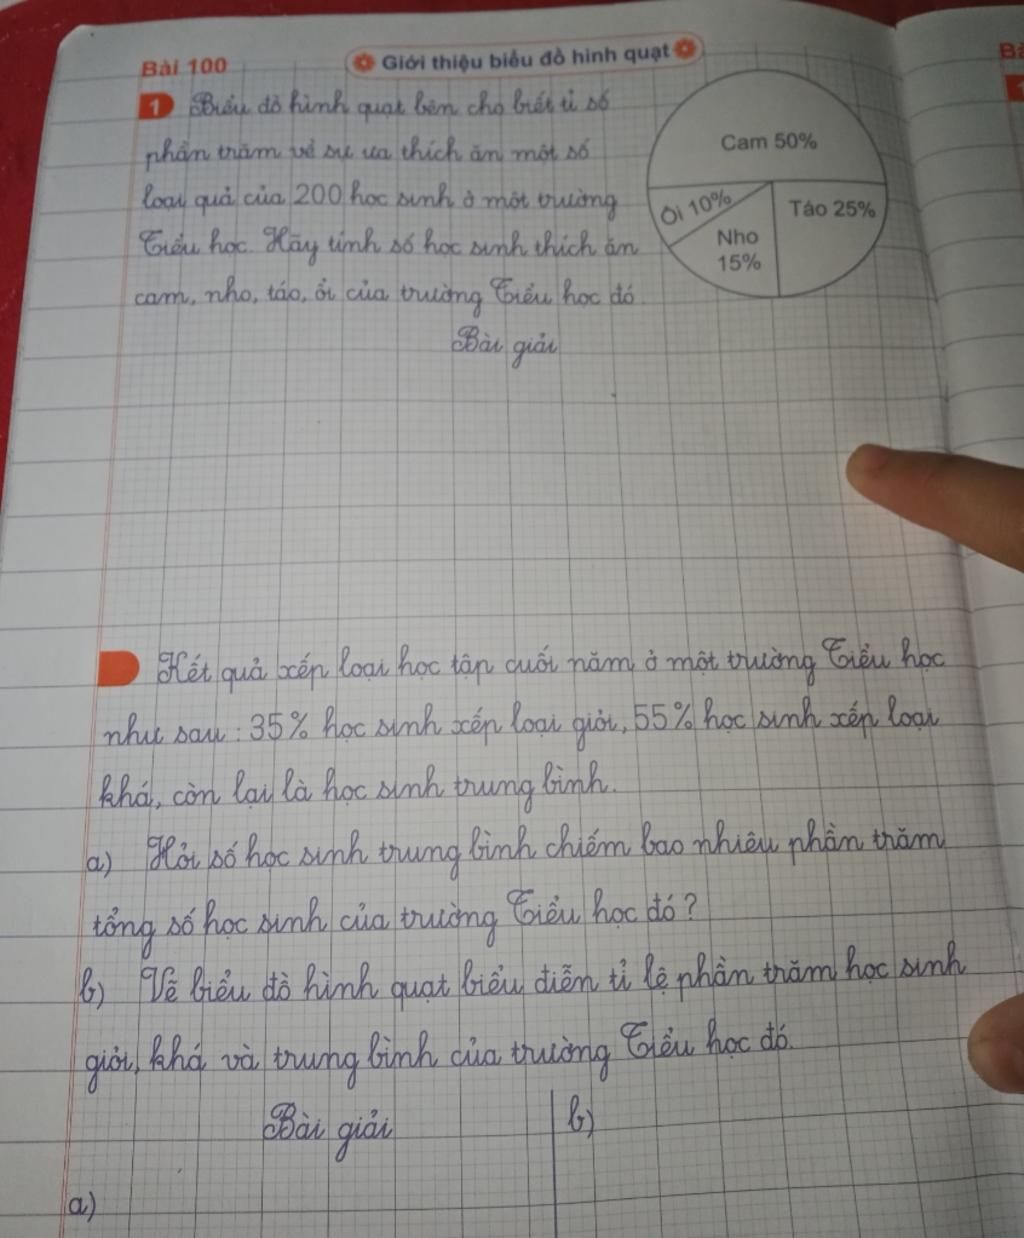 Bài 100
Giới thiệu biểu đồ hình quạt
1 Biểu đồ hình quạt bên cho biết tỉ số
phần trăm về sự ưa thích ăn một số
loại quả của 200 học sinh ở một trường
Tiểu học. Hãy tính số học sinh thích ăn
cam, nho, táo, ổi của trường Tiểu học đó.
Cam 50%
Ổi 10%
Táo 25%
Nho
15%
Bài giải
Kết quả xếp loại học tập cuối năm ở một trường Tiểu học
như sau: 35% học sinh xếp loại giỏi, 55% học sinh xếp loại
khá, còn lại là học sinh trung bình.
a) Hỏi số học sinh trung bình chiếm bao nhiêu phần trăm
tổng số học sinh của trường Tiểu học đó?
b) Vẽ biểu đồ hình quạt biểu diễn tỉ lệ phần trăm học sinh
giỏi, khá và trung bình của trường Tiểu học đó.
Bài giải
b)
a)